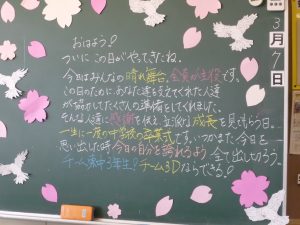 おはよう！
ついにこの日がやってきたね。
今日はみんなの晴れ舞台。全員が主役です。
この日のために、あなた達を支えてくれた人達
が協力してたくさんの準備をしてくれました。
そんな人達に感謝を伝え、立派な成長を見せる日。
一生に一度の中学校の卒業式です。いつかまた今日を
思い出した時、今日の自分を誇れるよう全て出し切ろう。
チーム東中3年生！チーム3Dならできる！
3月7日